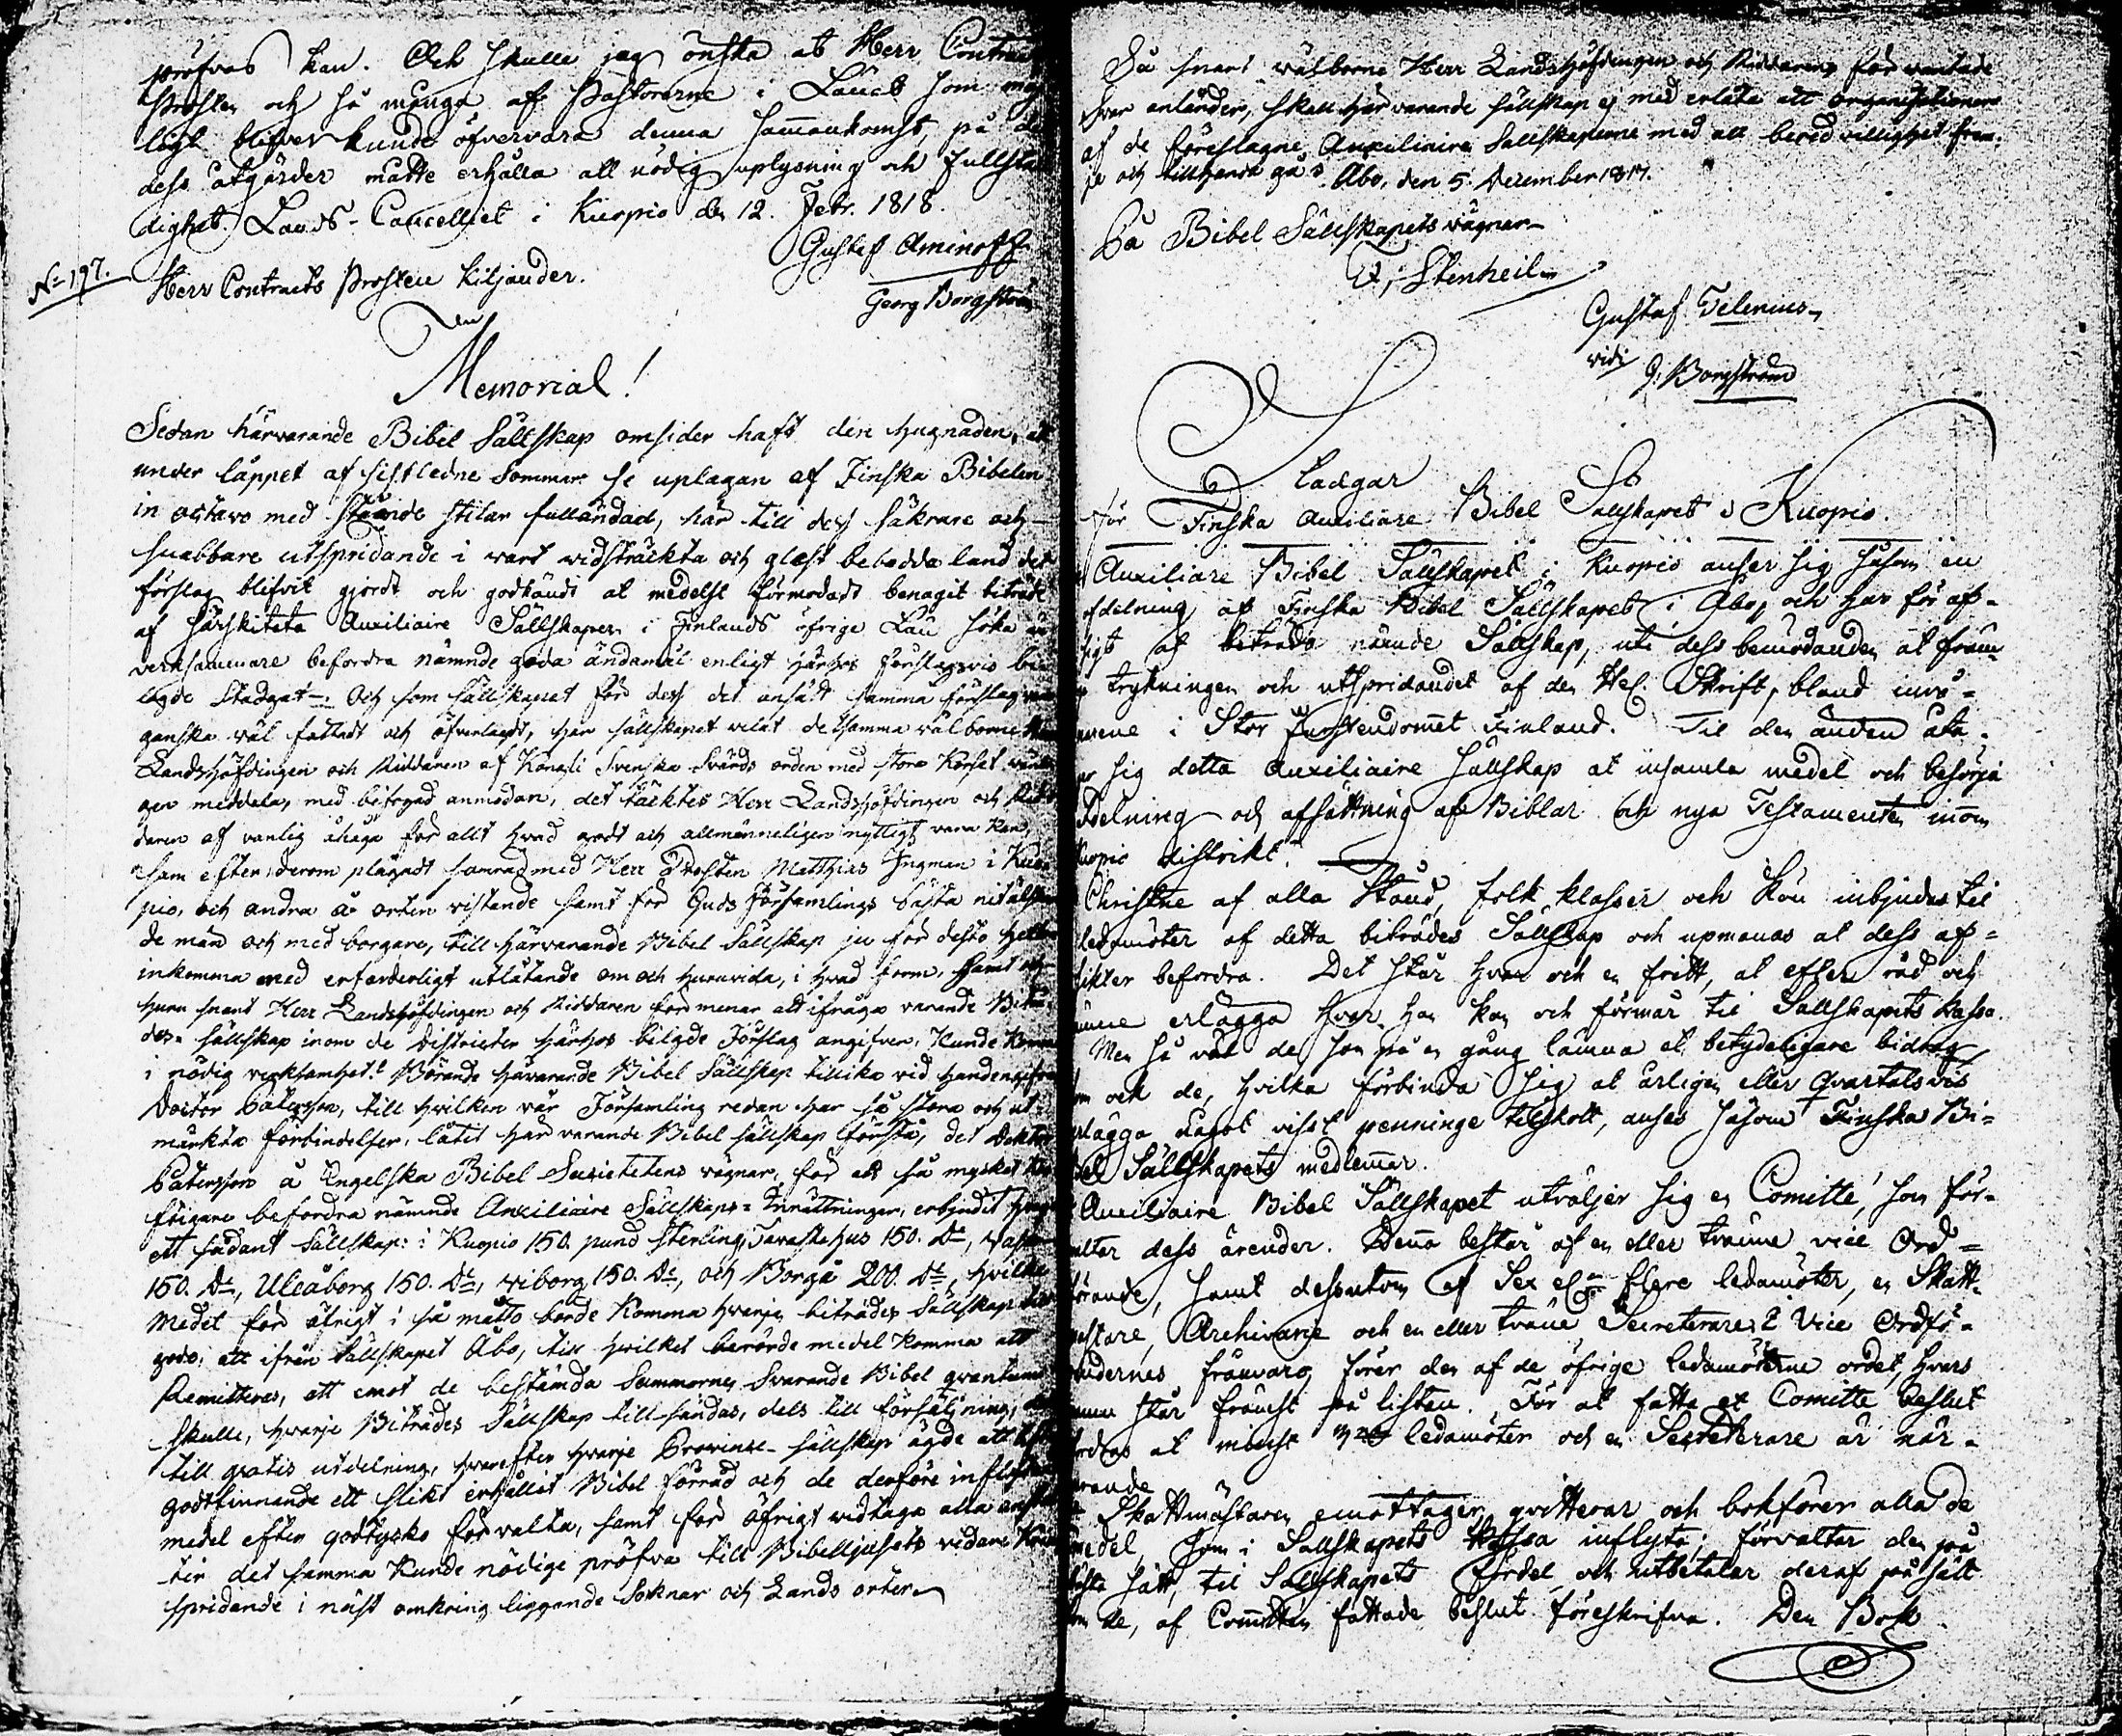 pröfvas kan. Och skulle jag önska at Herr Contracts
Prosten och så många af Pastorerne i Länet som möj
ligt blifver kunde öfvervara denna sammankomst, på
dess åtgärder måtte erhålla all nödig uplysning och fullstän
dighet. Lands-Cancelliet i Kuopio den 12. Febr. 1818.
Gustaf Aminoff
Georg Borgström
No 197.
Herr Contracts Prosten Kiljander.
Memorial!
Sedan härvarande Bibel Sällskap omsider haft den hugnaden, att
under loppet af sistledne Sommar se uplagan af Finska Bibelen
in octavo med stående stilar fulländad, har till dess säkrare och
snabbare utspridande i vart vidsträckta och glest bebodda land det
förslag blifvit gjordt och godkändt at medelst förmodadt benägit biträde
af särskilte Auxiliaire Sällskaper i Finlands öfrige Län söka än
verksammare befordra nämnde goda ändamål enligt härhos Förslagsvis bi
lagde Stadgat. Och som Sällskapet för dess del ansådt samma förslag vara
ganska väl fattadt och öfverlagdt, har Sällskapet velat detsamma välborne Herr
Landshöfdingen och Riddaren af Kongli Svenska Svärds orden med stora Korset
gen meddela, med bifogad anmodan, det täcktes Herr Landshöfdingen och Rid
daren af vanlig åhåga för allt hvad godt och allmänneligen nyttigt vara kan,
sam efter, derom plägadt samråd med Herr Prosten Matthias Ingman i Kuo
pio, och andra å orten vistande samt för Guds Församlings bästa nitälskan
de män och medborgare, till härvarande Bibel Sällskap ju för desto heller
inkomma med erforderligt utlåtande om och huruvida, i hvad form, samt och
huru snart Herr Landshöfdingen och Riddaren förmenar att ifråga varande Biträ
des-Sällskap inom de Districter härhos bilgde Förslag angifver, kunde komma
i nödig verksamhet. Börande härvarande Bibel Sällskap tillika vid handen gifva
Doctor Paterson, till hvilken vår Församling redan har så stora och ut
märkta förbindelser, låtit härvarande Bibel Sällskap förstå, det Doktor
Paterson å Engelska Bibel Societetens vägnar, för att så mycket
ftigare befordra nämnde Auxiliaire Sällskaps-Inrättningar, erbjudit hvarje
ett sådant Sällskap: i Kuopio 150. pund Sterling, Tavastehus 150. Do, Vasa
150. Do, Uleåborg 150. Do, Wiborg 150. Do, och Borgå 200. Do, hvilka
medel för öfrigt i så måtto borde komma hvarje biträdes Sällskap till
godo, att ifrån Sällskapet Åbo, till hvilket berörde medel komma att
Remitteras, att emot de bestämda Summorne, Svarande Bibel quantum
skulle, hvarje Biträdes Sällskap till-sändas, dels till försäljning, dels
till gratis utdelning, hvarefter hvarje Provinse-Sällskap ägde att efter
godtfinnande ett slikt erhållit Bibel förråd och de derföre influtne
medel efter godtycke förvalta, samt för öfrigt vidtaga alla anstal
ter det samma kunde nödige pröfva till Bibelljusets vidare kring
spridande i näst omkring liggande Soknar och Lands orter.
Så snart välborne Herr Landshöfdingen och Riddarens förväntade
svar anländer, skall härvarande Sällskap ej med erlåta att organisationen
af de föreslagne Auxiliaire Sällskaperne med all beredvillighet främ
ja och tillhanda gå. Åbo, den 5. December 1817.
På Bibel Sällskapets vägnar
F, Steinheil
Gustaf Gelenius
vidi G: Borgström
Stadgar
För Finska Auxiliare Bibel Sälskapet i Kuopio.
Auxiliare Bibel Sällskapet i Kuopio anser sig såsom en
afdelning af Finska Bibel Sällskapet i Åbo, och har för af-
sigt at biträda nämde Sällskap, uti dess bemödanden at främ
ja tryckningen och utspridandet af den Hel. Skrift, bland invå-
narene i Stor Furstendomet Finland. Til den ändan åta-
ger sig detta Auxiliaire Sällskap at insamla medel och besörja
utdelning och afsättning af Biblar och nya Testamenten inom
Kuopio distrikt.
Christne af alla Stånd, folk klasser och kön inbjudas til
Ledamöter af detta biträdes Sällskap och upmanas at dess af-
sikter befordra. Det står hvar och en fritt, at efter råd och
ämne erlägga hvar han kan och förmår til Sällskapets Kassa.
Men så väl de som på en gång lämna et betydeligare bidrag
som ock de, hvilka förbinda sig at årligen eller qvartalsvis
erlägga något visst penninge tilskott, anses såsom Finska Bi-
bel Sällskapets medlemmar.
Auxiliaire Bibel Sällskapet utväljer sig en Comitté, som för-
valtar dess ärender. Denna består af en eller tvänne vice Ord-
förande, samt dessutom af Sex el. flere ledamöter, en Skatt-
mästare, Archivarie och en eller tvänne Secreterare. I Vice Ordfö-
randernes frånvaro, förer den af de öfrige ledamöterne ordet, hvars
namn står främst på listan. För at fatta et Comitté beslut
fordras at minst ledamöter och en Secreterare är när-
varande
Skattmästaren emottager, qvitterar och bokförer alla de
medel, som i Sällskapets Kassa inflyta; förvaltar den på
bästa sätt, til Sällskapets fördel, och utbetalar deraf på sätt
som de, af Comittén fattade beslut föreskrifva. Den Bok